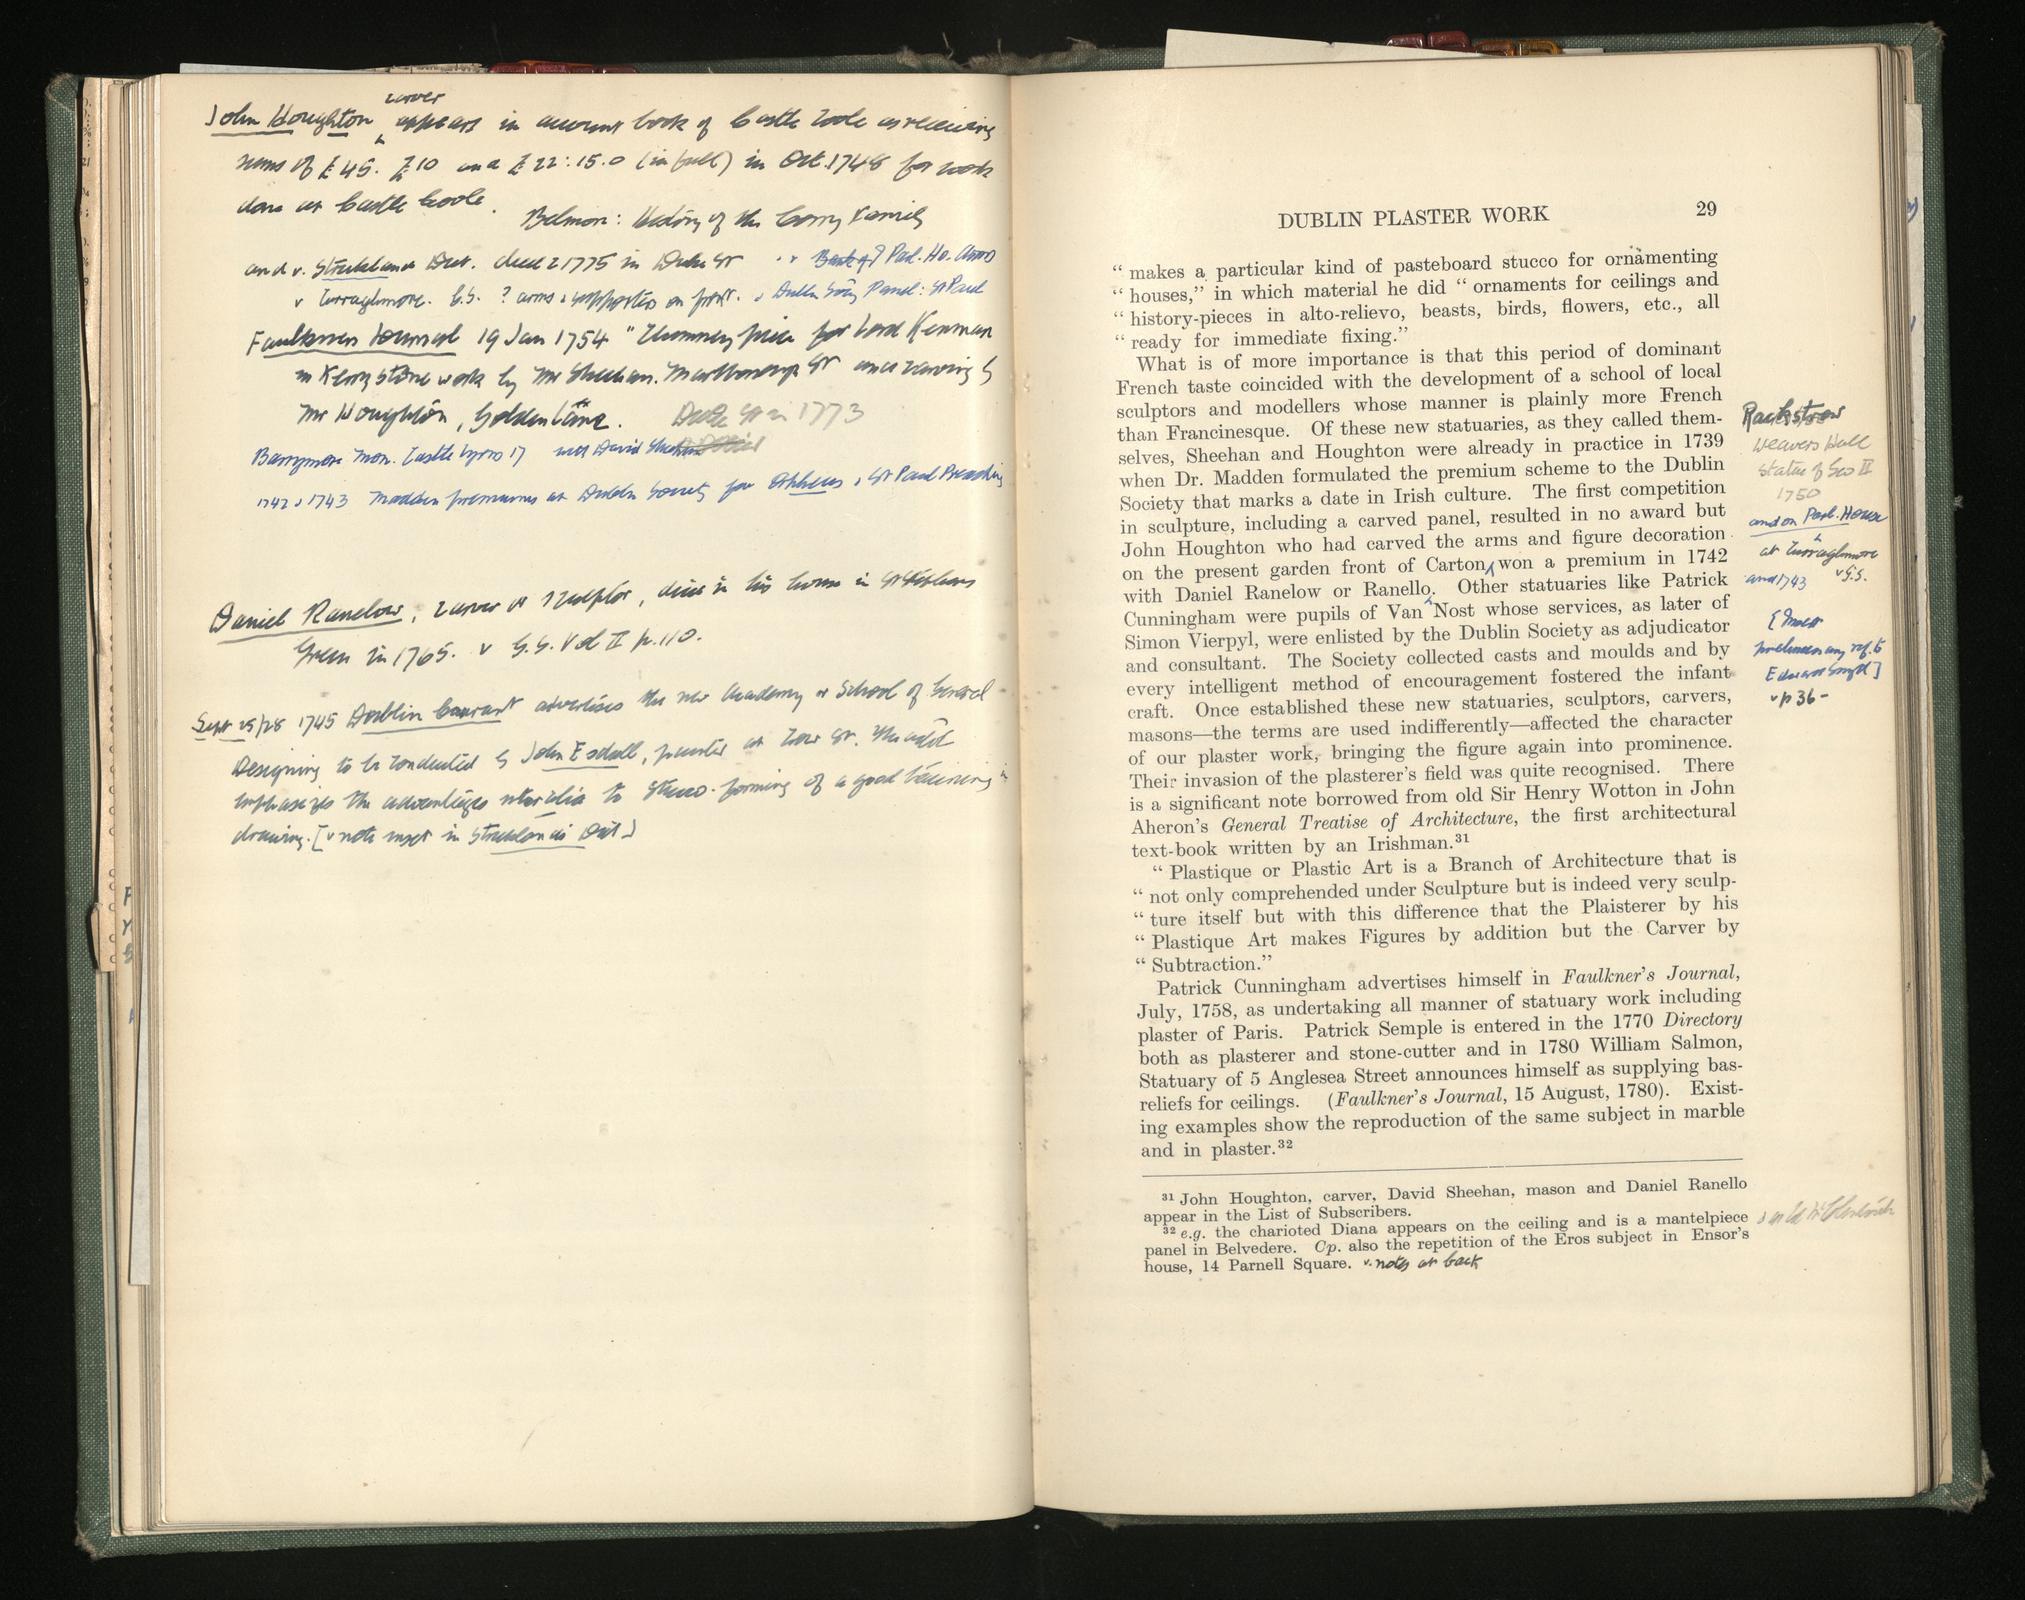 carver
John Houghton appears in account book of Castle Coole as receiving
sums of £45. £10 and £22:15.0 (in full) in Oct. 1748 for work
done at Castle Coole.
Belmore: History of the Corry Family
and v. Strickland Dict. died 1775 in Duke St Parl. Ho.
v Curraghmore. G.S. ? arms & supporters on front. & Dublin Socy Panel: St Paul
Faulkners Journal 19 Jan 1754 "Chimney piece for Lord Kenmare
in Kerry stone work by Mr Sheehan. Marlborough St and carving by
Mr Houghton, Golden Lane. Duke St in 1773
Barrymore Mon. Castle Lyons 17 with David Sheehan
1742 & 1743 Madden premiums at Dublin Society for & St Paul Preaching
Daniel Ranelow, carver or sculptor, died in his house in St Stephens
Green in 1765. v G.S. Vol II p.110.
Sept 25/28 1745 Dublin Courant advertises the new Academy or School of General
Designing to be conducted by John Esdall, painter at St. The advt
emphasizes the advantages inter alia to Stucco-forming of a good training in
drawing. [v note inset in Strickland's Dict.]
DUBLIN PLASTER WORK 29
“ makes a particular kind of pasteboard stucco for ornamenting
“ houses,” in which material he did “ ornaments for ceilings and
“ history-pieces in alto-relievo, beasts, birds, flowers, etc., all
“ ready for immediate fixing.”
What is of more importance is that this period of dominant
French taste coincided with the development of a school of local
sculptors and modellers whose manner is plainly more French
than Francinesque. Of these new statuaries, as they called them-
selves, Sheehan and Houghton were already in practice in 1739
when Dr. Madden formulated the premium scheme to the Dublin
Society that marks a date in Irish culture. The first competition
in sculpture, including a carved panel, resulted in no award but
John Houghton who had carved the arms and figure decoration
on the present garden front of Carton won a premium in 1742
with Daniel Ranelow or Ranello. Other statuaries like Patrick
Cunningham were pupils of Van Nost whose services, as later of
Simon Vierpyl, were enlisted by the Dublin Society as adjudicator
and consultant. The Society collected casts and moulds and by
every intelligent method of encouragement fostered the infant
craft. Once established these new statuaries, sculptors, carvers,
masons—the terms are used indifferently—affected the character
of our plaster work, bringing the figure again into prominence.
Their invasion of the plasterer's field was quite recognised. There
is a significant note borrowed from old Sir Henry Wotton in John
Aheron's General Treatise of Architecture, the first architectural
text-book written by an Irishman.³¹
“ Plastique or Plastic Art is a Branch of Architecture that is
“ not only comprehended under Sculpture but is indeed very sculp-
“ ture itself but with this difference that the Plaisterer by his
“ Plastique Art makes Figures by addition but the Carver by
“ Subtraction.”
Patrick Cunningham advertises himself in Faulkner's Journal,
July, 1758, as undertaking all manner of statuary work including
plaster of Paris. Patrick Semple is entered in the 1770 Directory
both as plasterer and stone-cutter and in 1780 William Salmon,
Statuary of 5 Anglesea Street announces himself as supplying bas-
reliefs for ceilings. (Faulkner's Journal, 15 August, 1780). Exist-
ing examples show the reproduction of the same subject in marble
and in plaster.³²
³¹ John Houghton, carver, David Sheehan, mason and Daniel Ranello
appear in the List of Subscribers.
³² e.g. the charioted Diana appears on the ceiling and is a mantelpiece
panel in Belvedere. Cp. also the repetition of the Eros subject in Ensor's
house, 14 Parnell Square. v. notes at back
Rackstrow
Weavers Hall
Statue of Geo II
1750
and on Parl. House
at Curraghmore
and 1743 v G.S.
[Insert
preliminary ref. to
Edward Smyth]
v p 36-